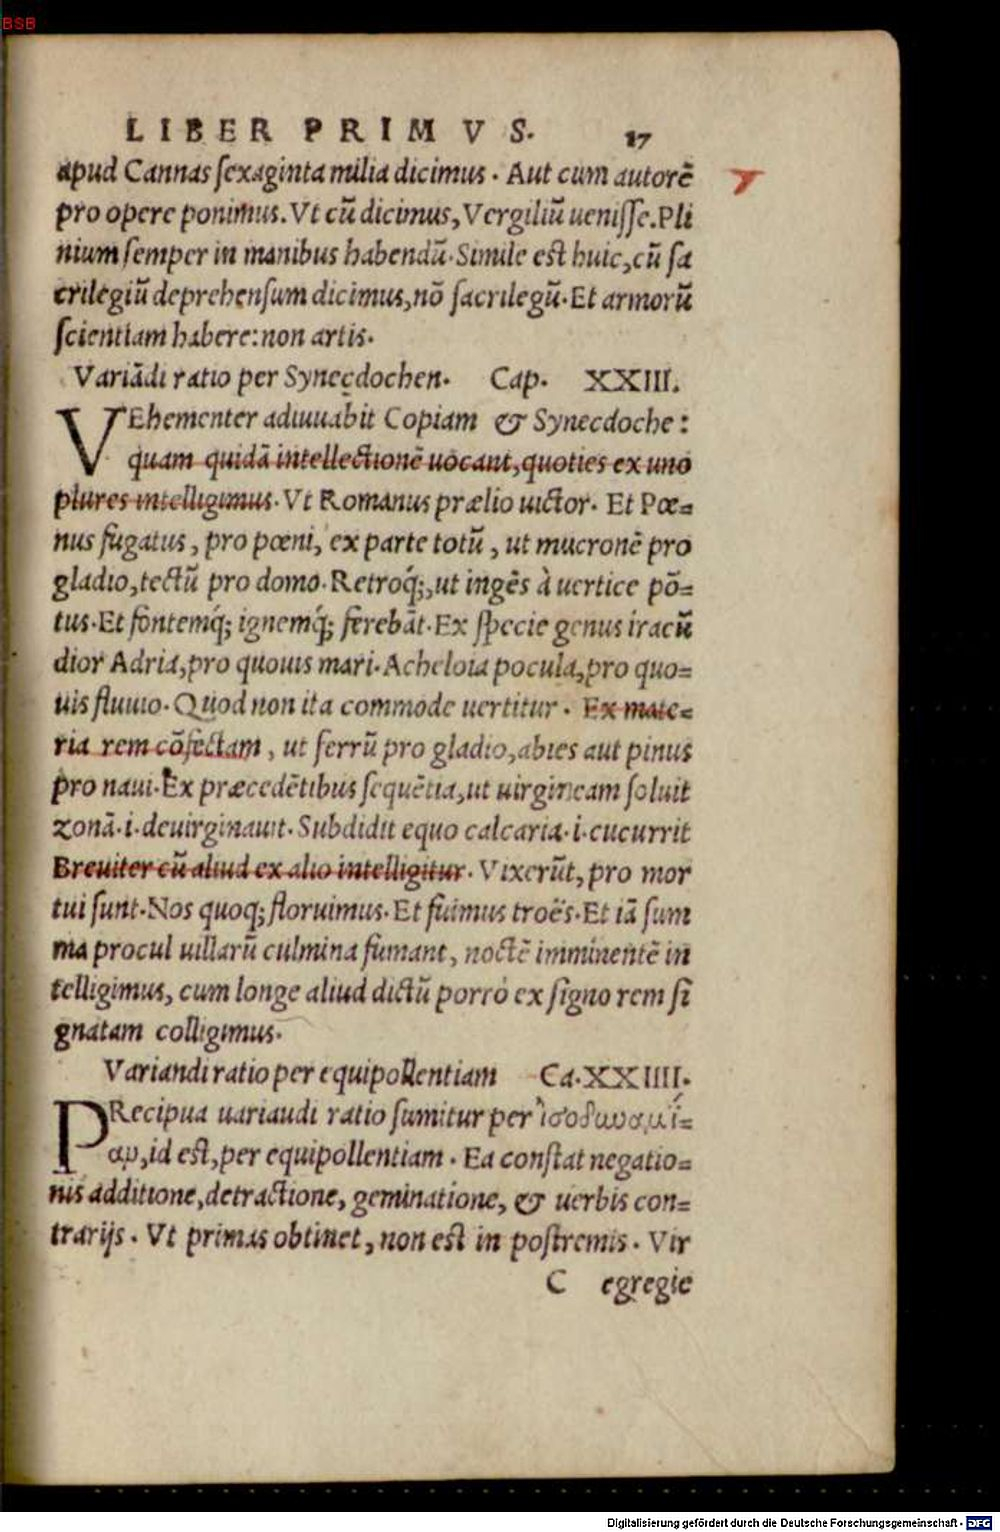 BSB
LIBER PRIMVS. 17
apud Cannas sexaginta milia dicimus. Aut cum autorē
pro opere ponimus. Vt cū dicimus, Vergiliū uenisse. Pli
nium semper in manibus habendū. Simile est huic, cū sa
crilegiū deprehensum dicimus, nō sacrilegū. Et armorū
scientiam habere: non artis.
Variādi ratio per Synecdochen. Cap. XXIII.
VEhementer adiuuabit Copiam & Synecdoche:
quam quidā intellectionē uocant, quoties ex uno
plures intelligimus. Vt Romanus prælio uictor. Et Pœ=
nus fugatus, pro pœni, ex parte totū, ut mucronē pro
gladio, tectū pro domo. Retroq́;, ut ingēs à uertice pō=
tus. Et fontemq́; ignemq́; ferebāt. Ex specie genus iracū
dior Adria, pro quouis mari. Acheloia pocula, pro quo=
uis fluuio. Quod non ita commode uertitur. Ex mate=
ria rem cōfectam, ut ferrū pro gladio, abies aut pinus
pro naui. Ex præcedētibus sequētia, ut uirgineam soluit
zonā. i. deuirginauit. Subdidit equo calcaria. i. cucurrit
Breuiter cū aliud ex alio intelligitur. Vixerūt, pro mor
tui sunt. Nos quoq; floruimus. Et fuimus troës. Et iā sum
ma procul uillarū culmina fumant, noctē imminentē in
telligimus, cum longe aliud dictū porrò ex signo rem si
gnatam colligimus.
Variandi ratio per equipollentiam Ca. XXIIII.
PRecipua uariaudi ratio sumitur per ἰσοδυναμί=
αν, id est, per equipollentiam. Ea constat negatio=
nis additione, detractione, geminatione, & uerbis con=
trarijs. Vt primas obtinet, non est in postremis. Vir
C egregie
Digitalisierung gefördert durch die Deutsche Forschungsgemeinschaft - DFG